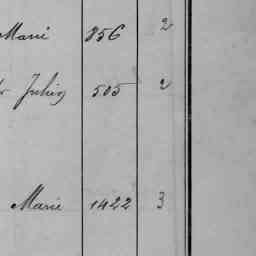 Marie 856 2
Julius 505 2
Marie 1422 3